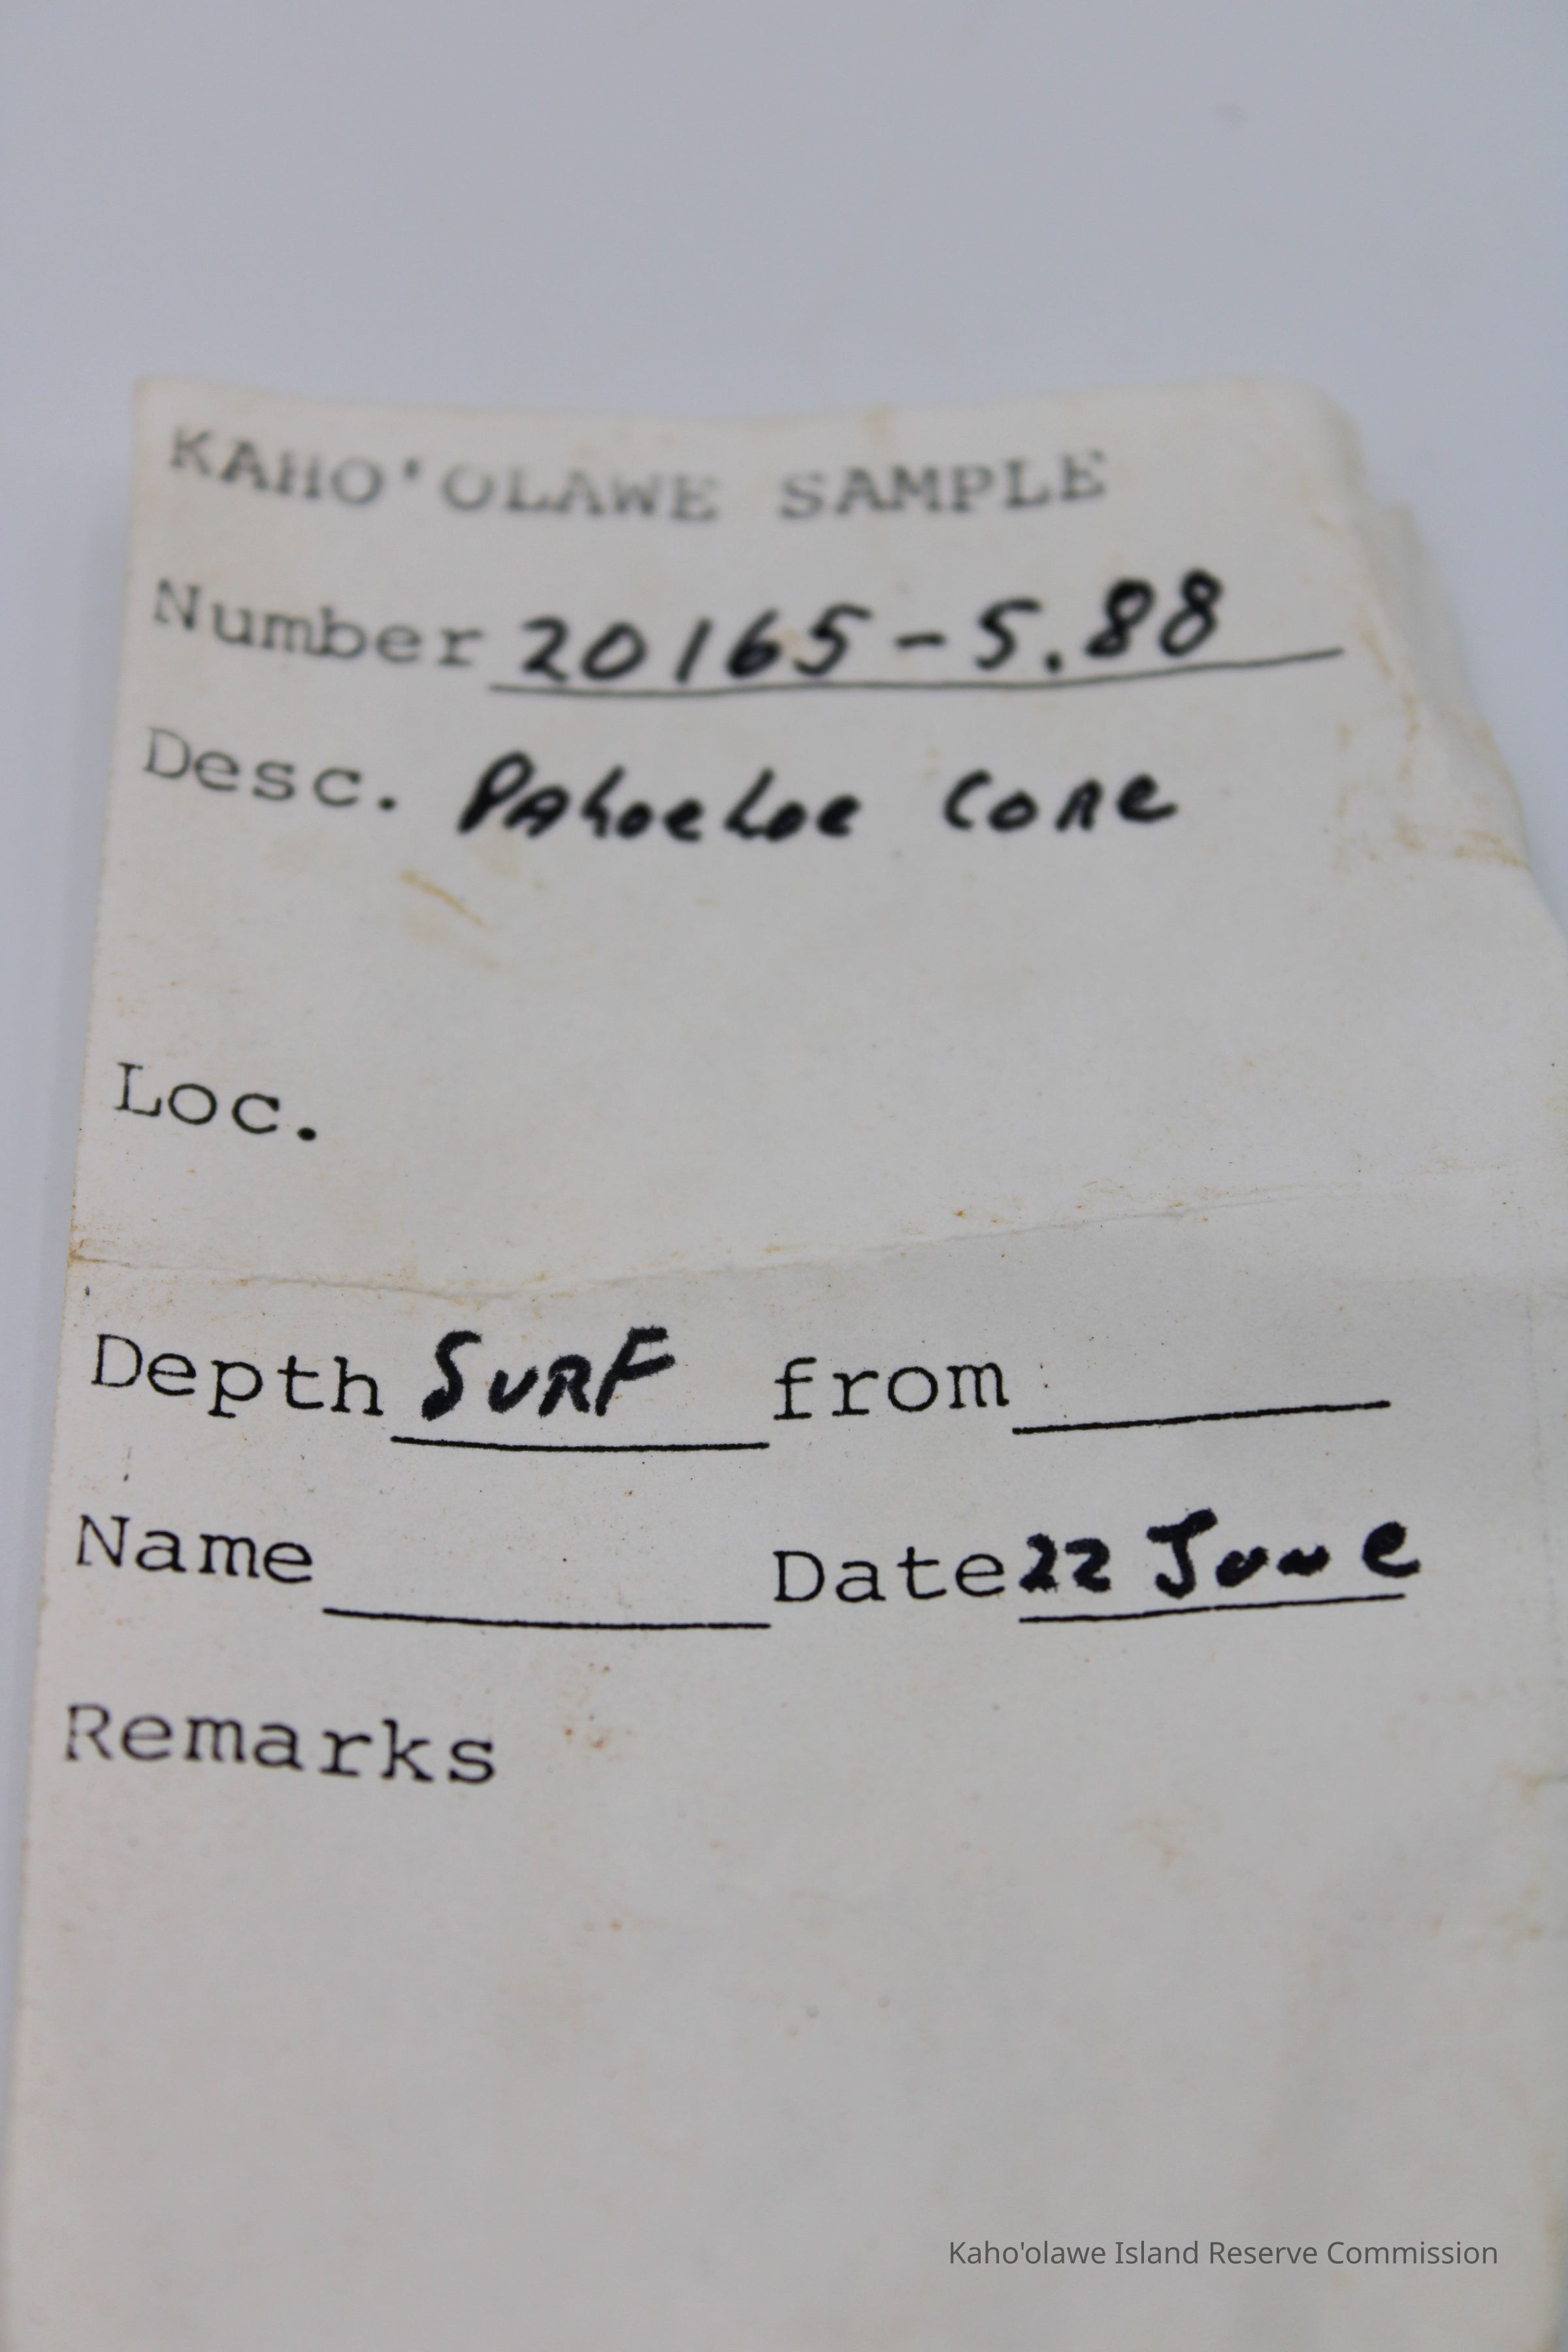 KAHO'OLAWE SAMPLE
Number 20165-5.88
Desc. Pahoehoe Core
Loc.
Depth SURF from
Name Date 22 June
Remarks
Kaho'olawe Island Reserve Commission